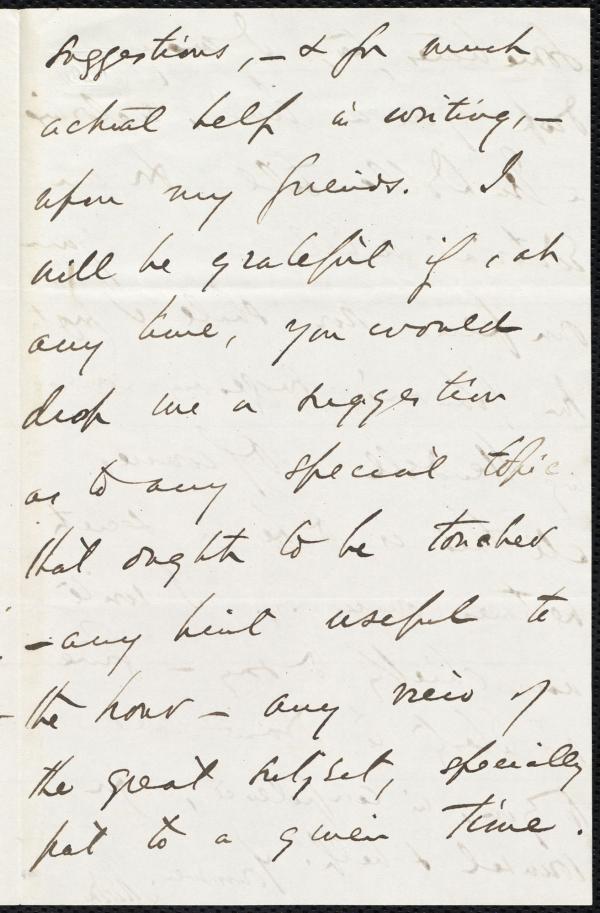 suggestions, – & for much
actual help in writing, –
upon my friends. I
will be grateful if, at
any time, you would
drop me a suggestion
as to any special topic
that ought to be touched
– any hint useful to
the hour – any view of
the great subject, specially
pat to a given time.